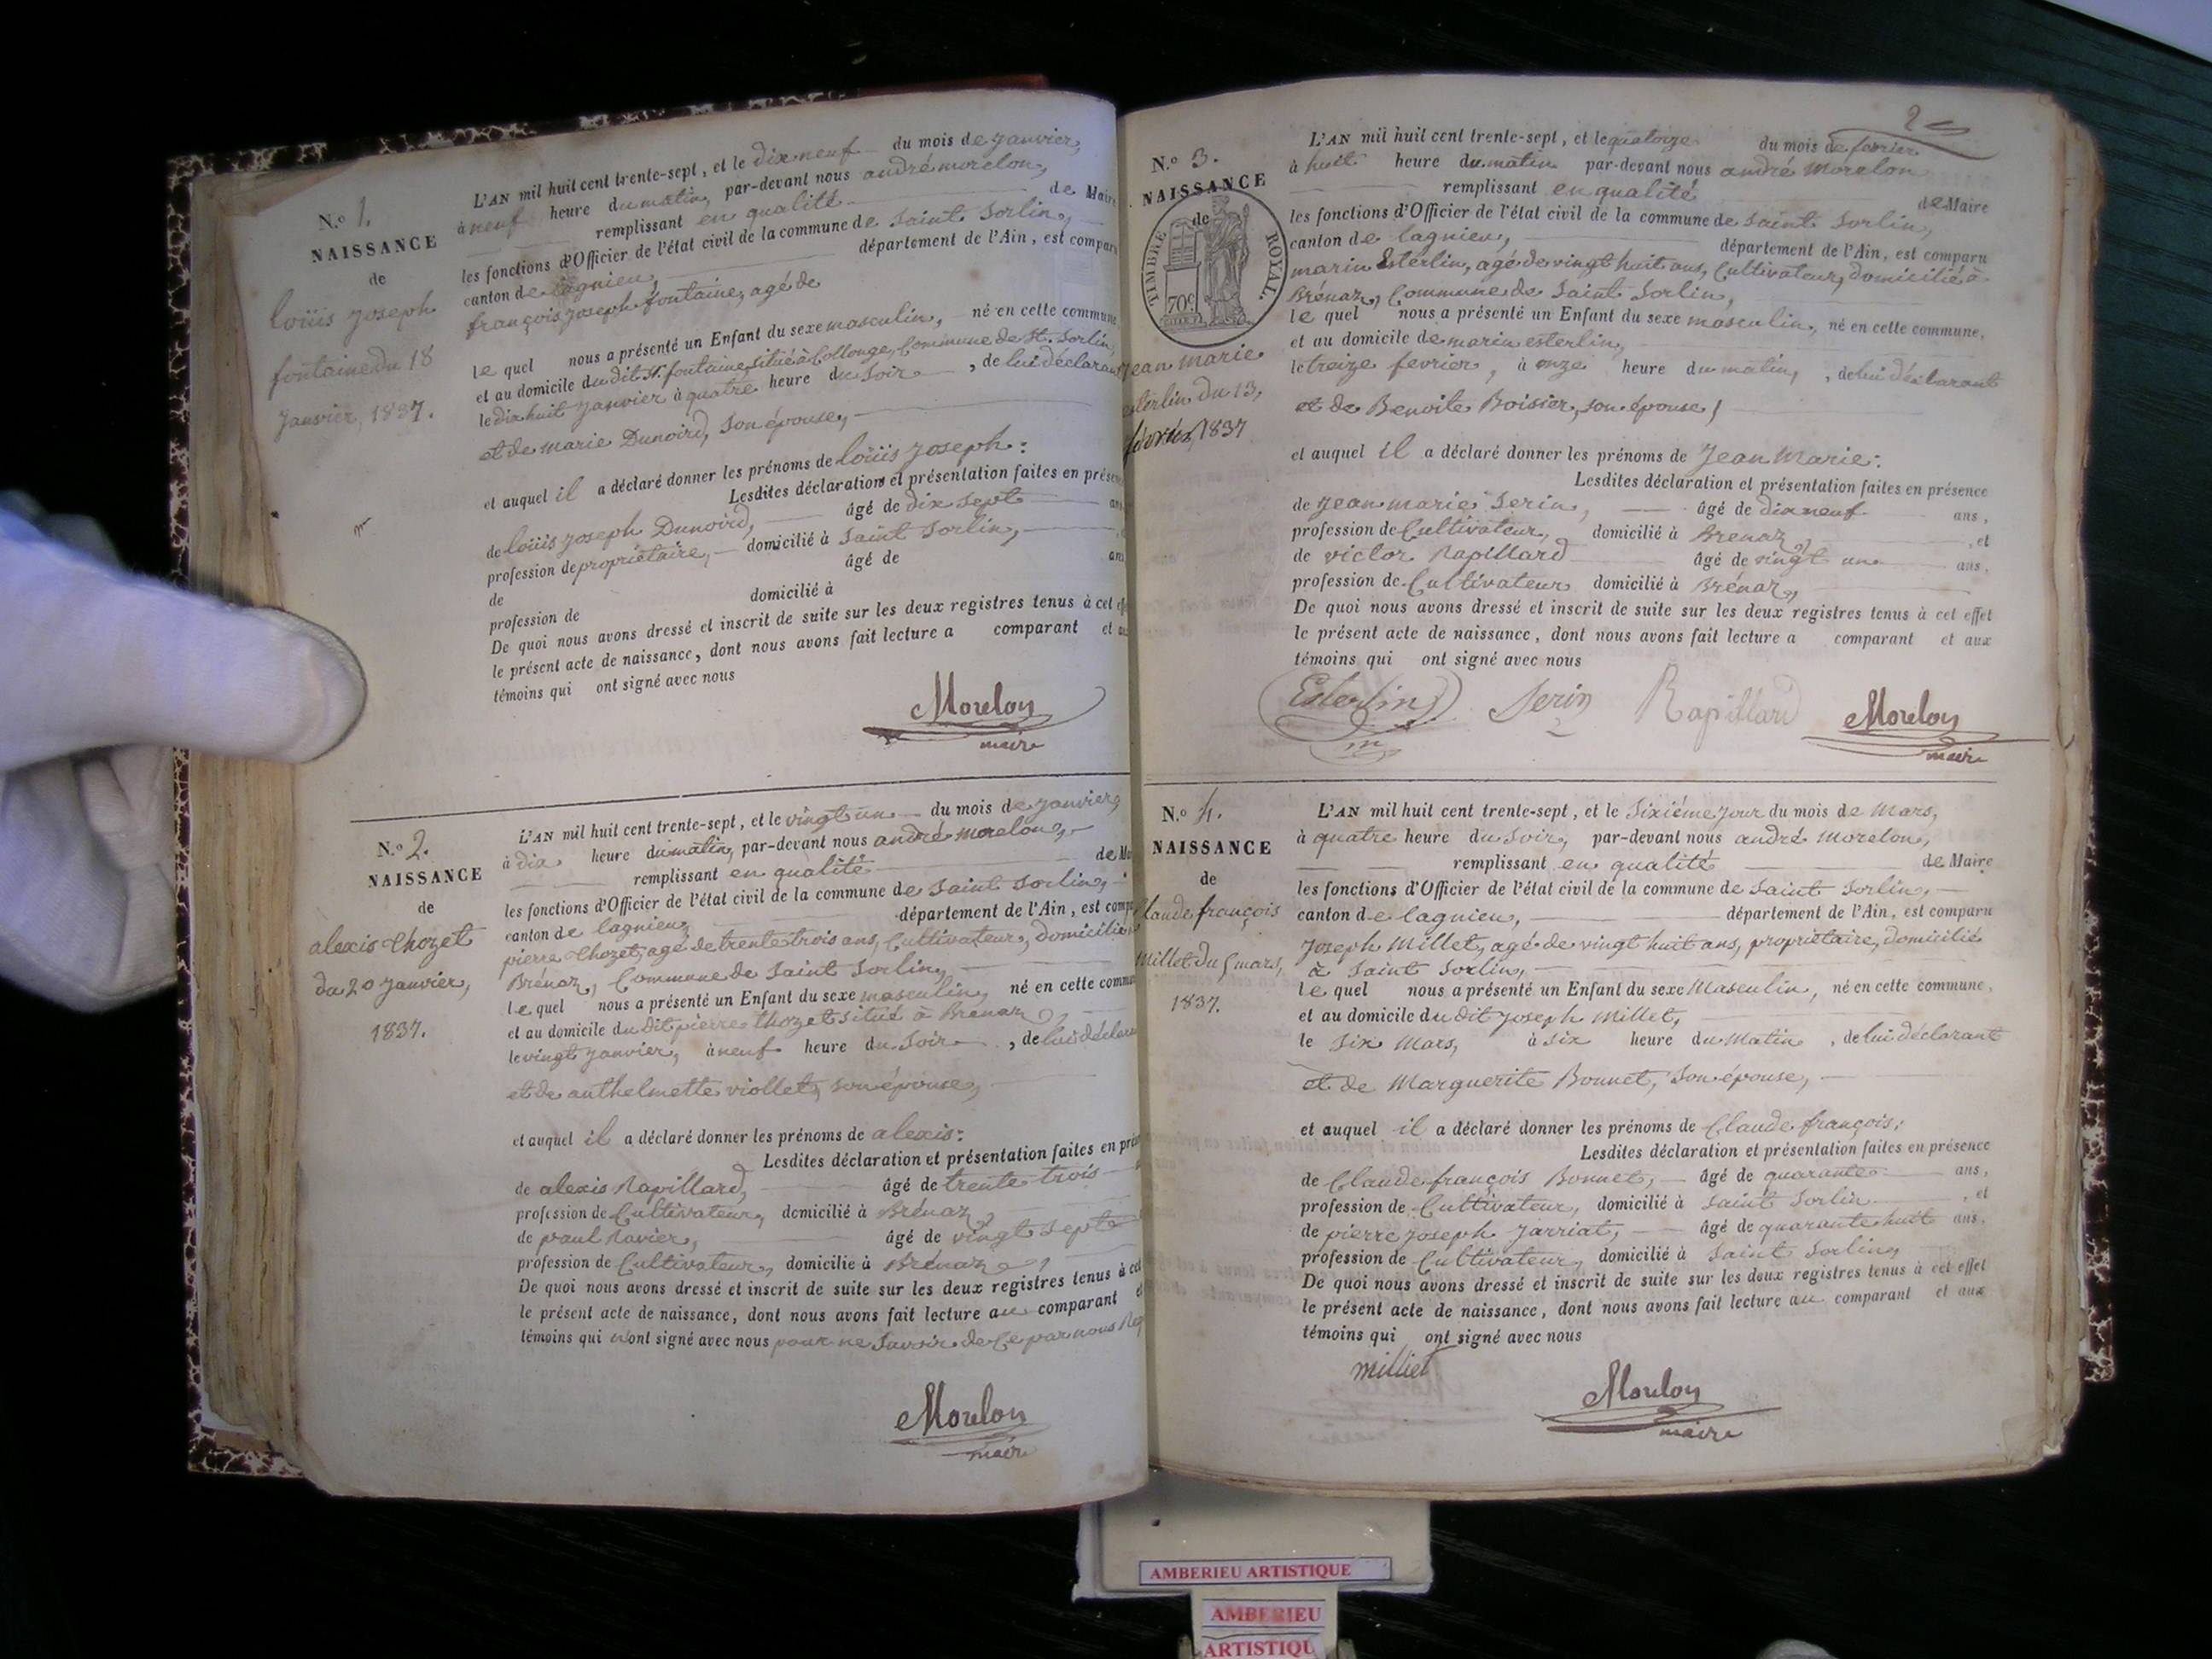 N.o 1.
NAISSANCE
de
loüis joseph
fontaine du 18
janvier, 1837.
L'AN mil huit cent trente-sept, et le dix neuf du mois de janvier,
à neuf heure du matin, par-devant nous andré morelon,
remplissant en qualité de Maire
les fonctions d'Officier de l'état civil de la commune de Saint Sorlin,
canton de lagnieu, département de l'Ain, est comparu
françois joseph fontaine, agé de
le quel nous a présenté un Enfant du sexe masculin, né en cette commune
et au domicile du dit Sr. fontaine situé à Collonge, Commune de St. Sorlin,
le dix huit janvier à quatre heure du Soir, de lui déclarant
et de marie Dunoird, son épouse,
et auquel il a déclaré donner les prénoms de loüis joseph:
Lesdites déclarations et présentation faites en présen
de loüis joseph Dunoird, âgé de dix sept ans
profession de propriétaire, domicilié à Saint Sorlin,
de âgé de ans
profession de domicilié à
De quoi nous avons dressé et inscrit de suite sur les deux registres tenus à cet
le présent acte de naissance, dont nous avons fait lecture a comparant et
témoins qui ont signé avec nous
Morelon
maire
N.o 2.
NAISSANCE
de
alexis thozet
du 20 janvier,
1837.
L'AN mil huit cent trente-sept, et le vingt un du mois de janvier,
à dix heure du matin, par-devant nous andré morelon,
remplissant en qualité de
les fonctions d'Officier de l'état civil de la commune de Saint Sorlin,
canton de lagnieu, département de l'Ain, est comp
pierre thozet, agé de trente trois ans, Cultivateur, domicilié
Brénaz, Commune de Saint Sorlin,
le quel nous a présenté un Enfant du sexe masculin, né en cette commu
et au domicile du dit pierre thozet situé à Brenaz,
le vingt janvier, à neuf heure du Soir, de lui déclara
et de anthelmette viollet, son épouse,
et auquel il a déclaré donner les prénoms de alexis:
Lesdites déclaration et présentation faites en pré
de alexis Rapillard, âgé de trente trois
profession de Cultivateur, domicilié à Brénaz,
de paul Ravier, âgé de vingt sept
profession de Cultivateur, domicilié à Brénaz,
De quoi nous avons dressé et inscrit de suite sur les deux registres tenus à cet
le présent acte de naissance, dont nous avons fait lecture au comparant
témoins qui n'ont signé avec nous pour ne Savoir de Ce par nous
Morelon
maire
2
N.o 3.
NAISSANCE
de
TIMBRE ROYAL.
70c
jean marie
esterlin du 13,
février, 1837
L'AN mil huit cent trente-sept, et le quatorze du mois de fevrier
à huit heure du matin par-devant nous andré Morelon
remplissant en qualité de Maire
les fonctions d'Officier de l'état civil de la commune de Saint Sorlin,
canton de lagnieu, département de l'Ain, est comparu
marin Esterlin, agé de vingt huit ans, Cultivateur, domicilié à
Brénaz, Commune de Saint Sorlin,
le quel nous a présenté un Enfant du sexe masculin, né en cette commune,
et au domicile de marin esterlin,
le treize fevrier, à onze heure du matin, de lui déclarant
et de Benoite Boisier, son épouse,
et auquel il a déclaré donner les prénoms de Jean Marie:
Lesdites déclaration et présentation faites en présence
de jean marie Serin, âgé de dix neuf ans,
profession de Cultivateur, domicilié à Brenaz, et
de victor Rapillard âgé de vingt un ans,
profession de Cultivateur domicilié à Brénaz,
De quoi nous avons dressé et inscrit de suite sur les deux registres tenus à cet effet
le présent acte de naissance, dont nous avons fait lecture a comparant et aux
témoins qui ont signé avec nous
Esterlin Serin Rapillard Morelon
maire
N.o 4.
NAISSANCE
de
Claude françois
Millet du 5 mars,
1837.
L'AN mil huit cent trente-sept, et le Sixiéme jour du mois de Mars,
à quatre heure du Soir, par-devant nous andré Morelon,
remplissant en qualité de Maire
les fonctions d'Officier de l'état civil de la commune de Saint Sorlin,
canton de lagnieu, département de l'Ain, est comparu
joseph Millet, agé de vingt huit ans, propriétaire, domicilié
à Saint Sorlin,
le quel nous a présenté un Enfant du sexe Masculin, né en cette commune,
et au domicile du dit joseph Millet,
le Six Mars, à Six heure du Matin, de lui déclarant
et de Marguerite Bonnet, Son épouse,
et auquel il a déclaré donner les prénoms de Claude françois:
Lesdites déclaration et présentation faites en présence
de Claude françois Bonnet, âgé de quarante ans,
profession de Cultivateur, domicilié à Saint Sorlin, et
de pierre joseph jarriat, âgé de quarante huit ans.
profession de Cultivateur, domicilié à Saint Sorlin,
De quoi nous avons dressé et inscrit de suite sur les deux registres tenus à cet effet
le présent acte de naissance, dont nous avons fait lecture au comparant et aux
témoins qui ont signé avec nous
milliet
Morelon
maire
AMBERIEU ARTISTIQUE
AMBERIEU
ARTISTIQU